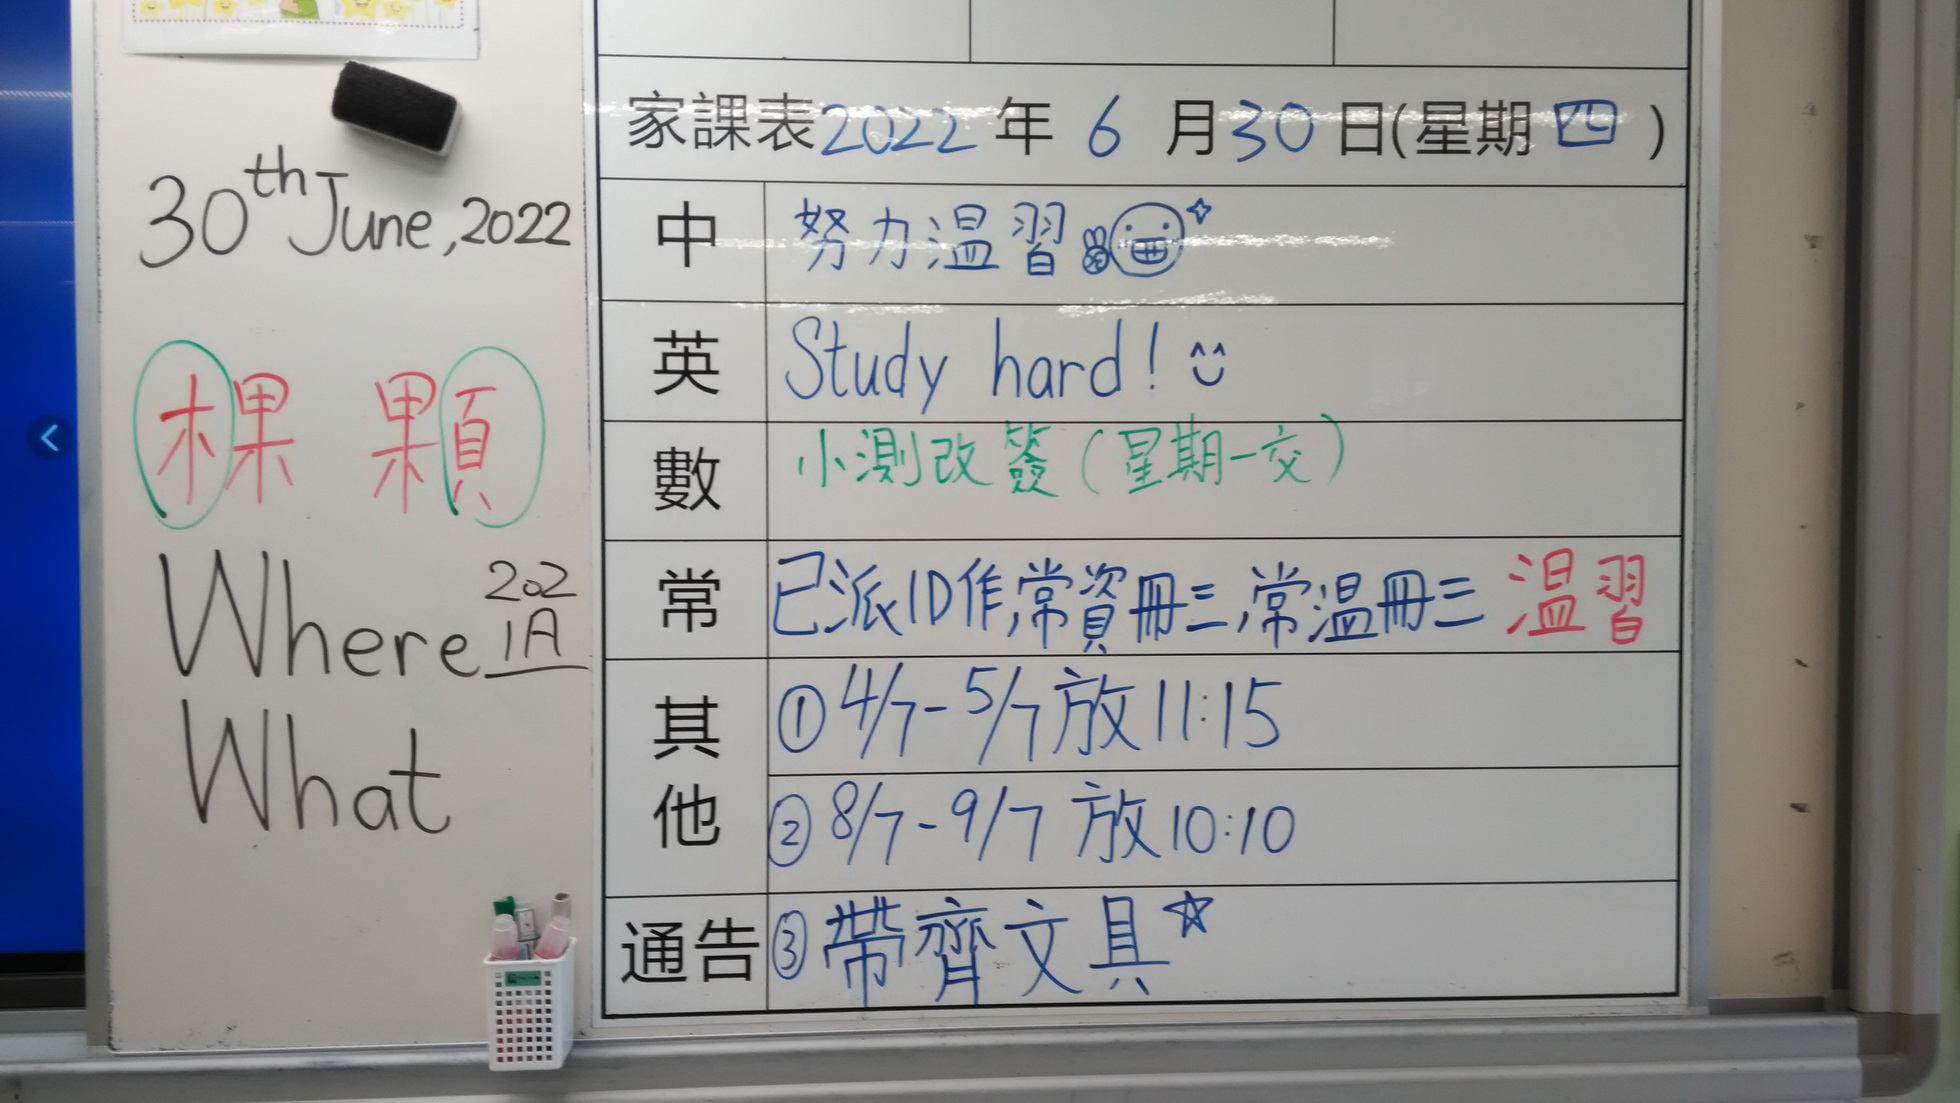 30th June, 2022
棵 顆
Where 202
1A
What
家課表2022年 6 月30日(星期四)
中 努力溫習
英 Study hard!
數 小測改簽(星期一交)
常 已派ID作,常資冊三,常溫冊三 溫習
其他 ① 4/7-5/7 放 11:15
② 8/7-9/7 放 10:10
通告 ③ 帶齊文具☆